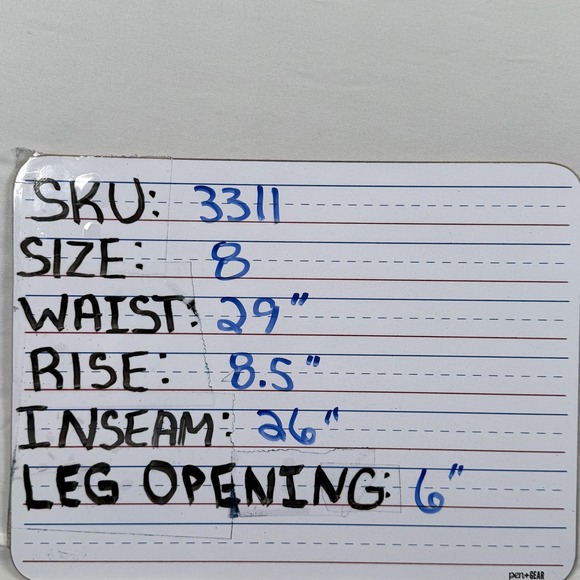 SKU: 3311
SIZE: 8
WAIST: 29"
RISE: 8.5"
INSEAM: 26"
LEG OPENING: 6"
pen+GEAR